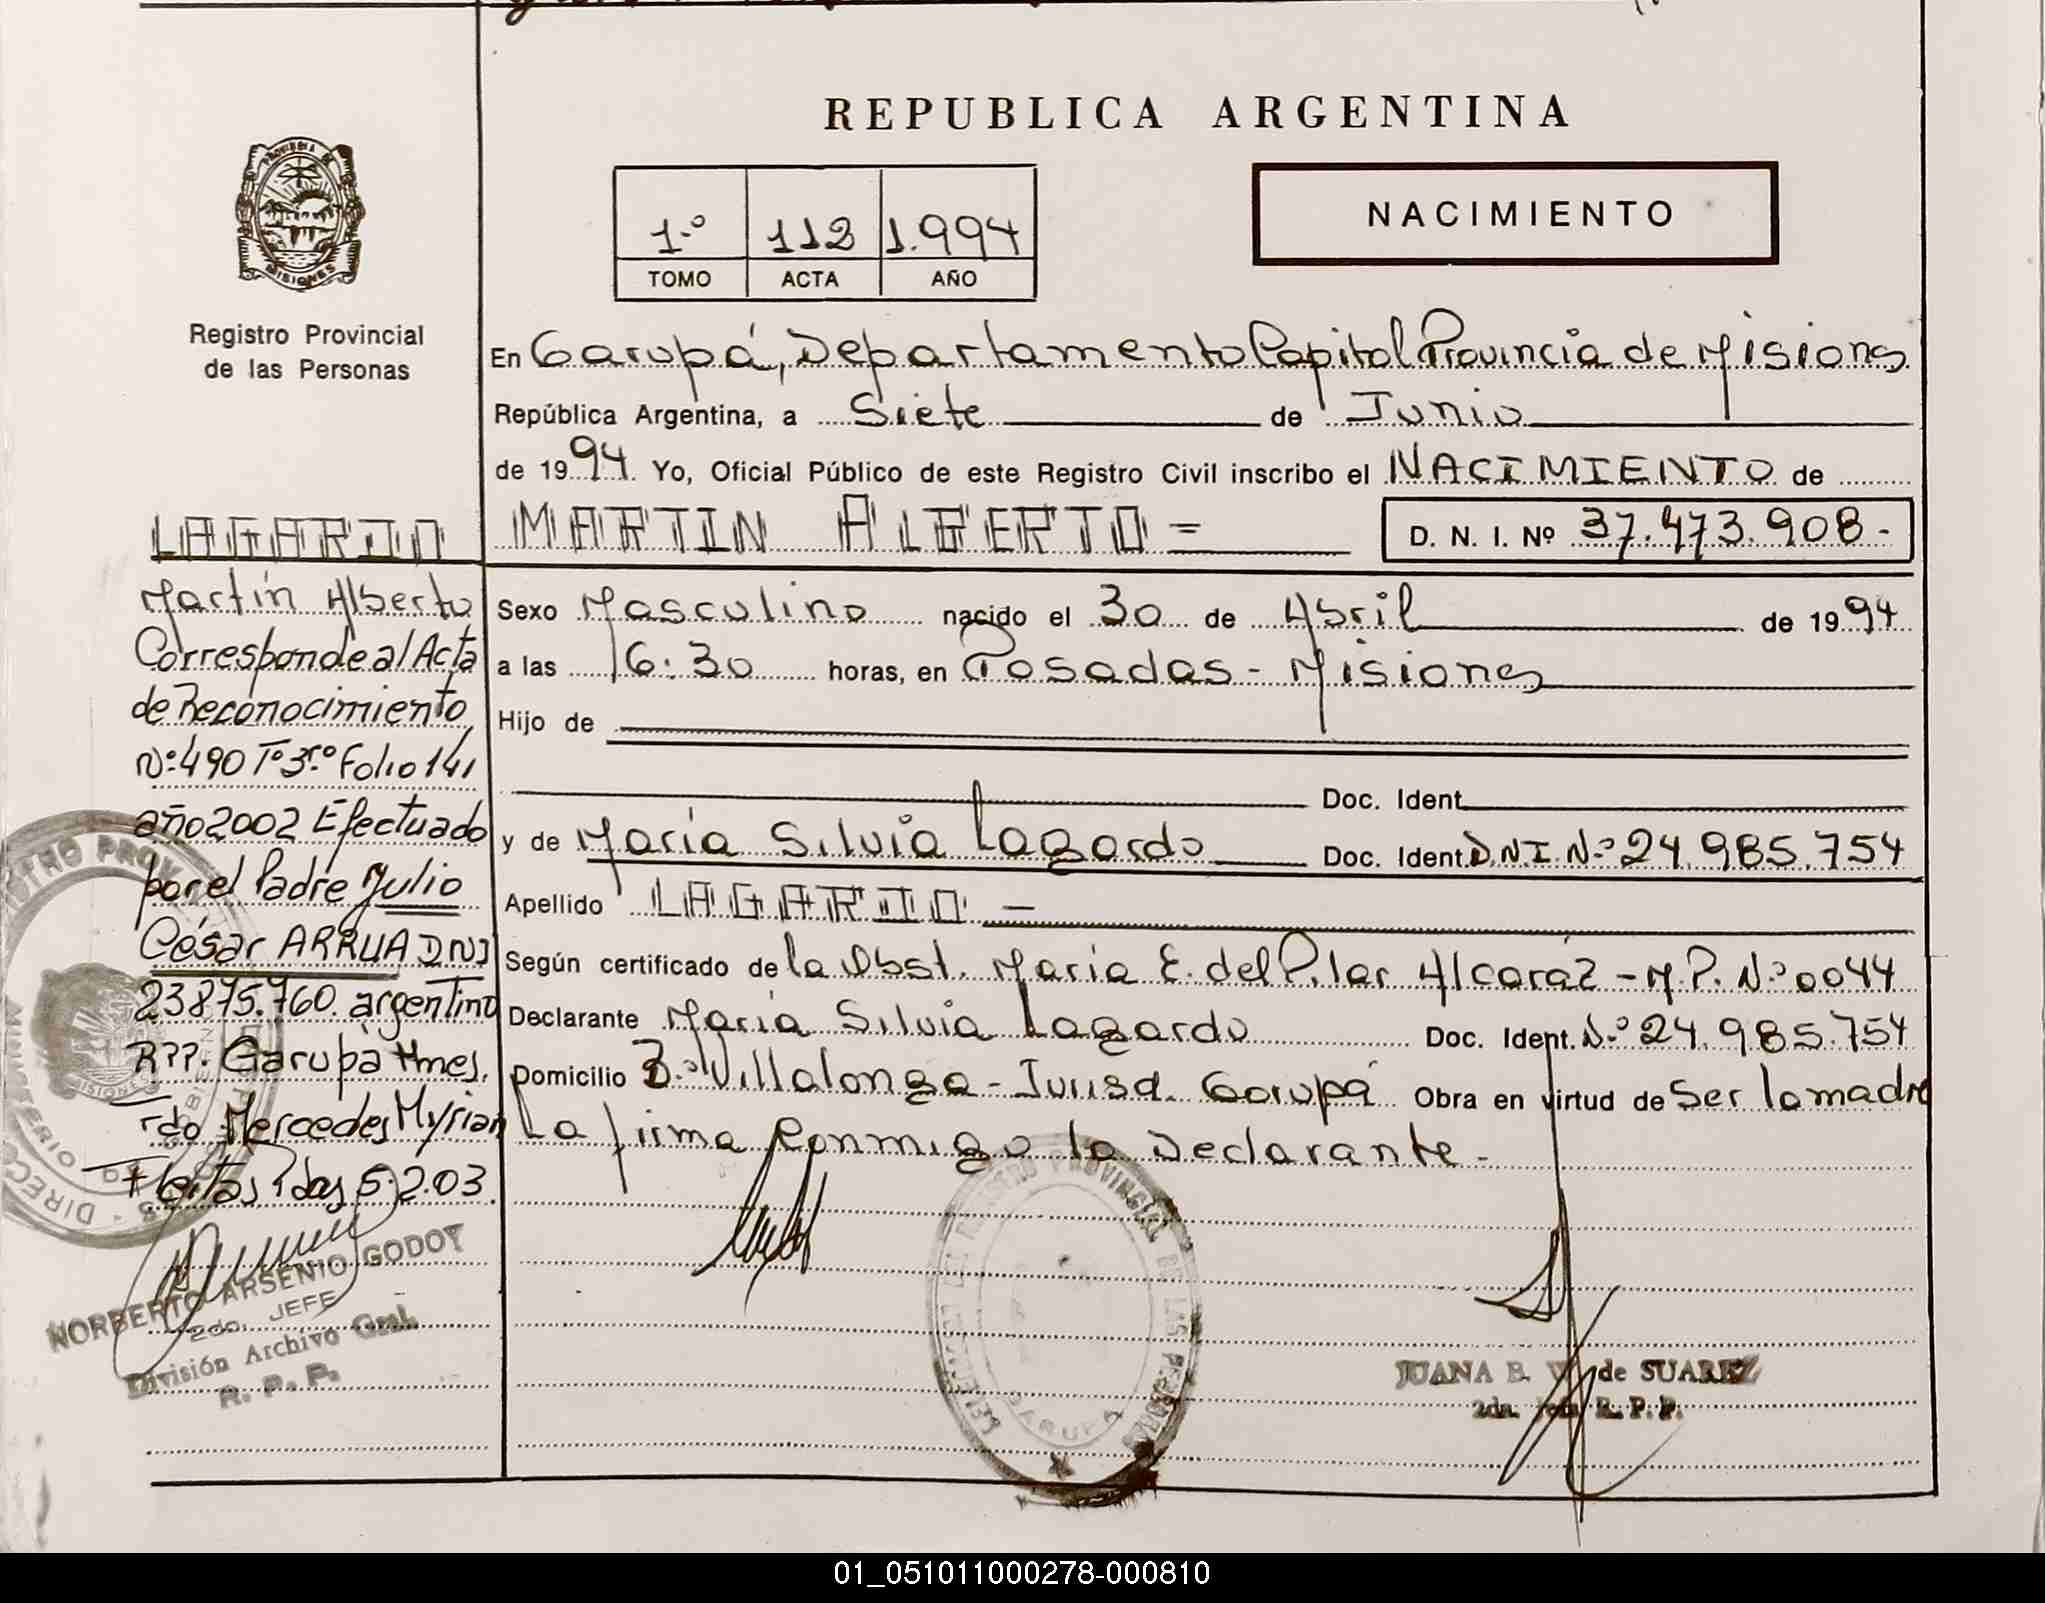 REPUBLICA ARGENTINA
PROVINCIA DE
MISIONES
Registro Provincial
de las Personas
1.º 112 1.994
TOMO ACTA AÑO
NACIMIENTO
En Garupá, Departamento Capital Provincia de Misiones
República Argentina, a Siete de Junio
de 1994. Yo, Oficial Público de este Registro Civil inscribo el NACIMIENTO de
MARTIN ALBERTO = D. N. I. Nº 37.473.908-
Sexo Masculino nacido el 30 de Abril de 1994
a las 16:30 horas, en Posadas - Misiones
Hijo de
Doc. Ident.
y de María Silvia Lagardo Doc. Ident. D.N.I. Nº 24.985.754
Apellido LAGARDO -
Según certificado de la Obst. María E. del Pilar Alcaráz - M.P. Nº 0044
Declarante María Silvia Lagardo Doc. Ident. Nº 24.985.754
Domicilio Bº Villalonga - Jurisd. Garupá Obra en virtud de Ser la madre
La firma Conmigo la Declarante.-
JUANA B. de SUAREZ
2da. Jefa R. P. P.
REGISTRO PROVINCIAL DE LAS PERSONAS
GARUPA
LAGARDO
Martín Alberto
Corresponde al Acta
de Reconocimiento
Nº 490 Tº 3º Folio 141
año 2002 Efectuado
por el Padre Julio
César ARRUA DNI
23875.760. argentino
RPP. Garupá Mnes.
Fdo Mercedes Myrian
Fleitas Pdas 5.2.03.
NORBERTO ARSENIO GODOY
2do. JEFE
División Archivo Gral.
R. P. P.
01_051011000278-000810